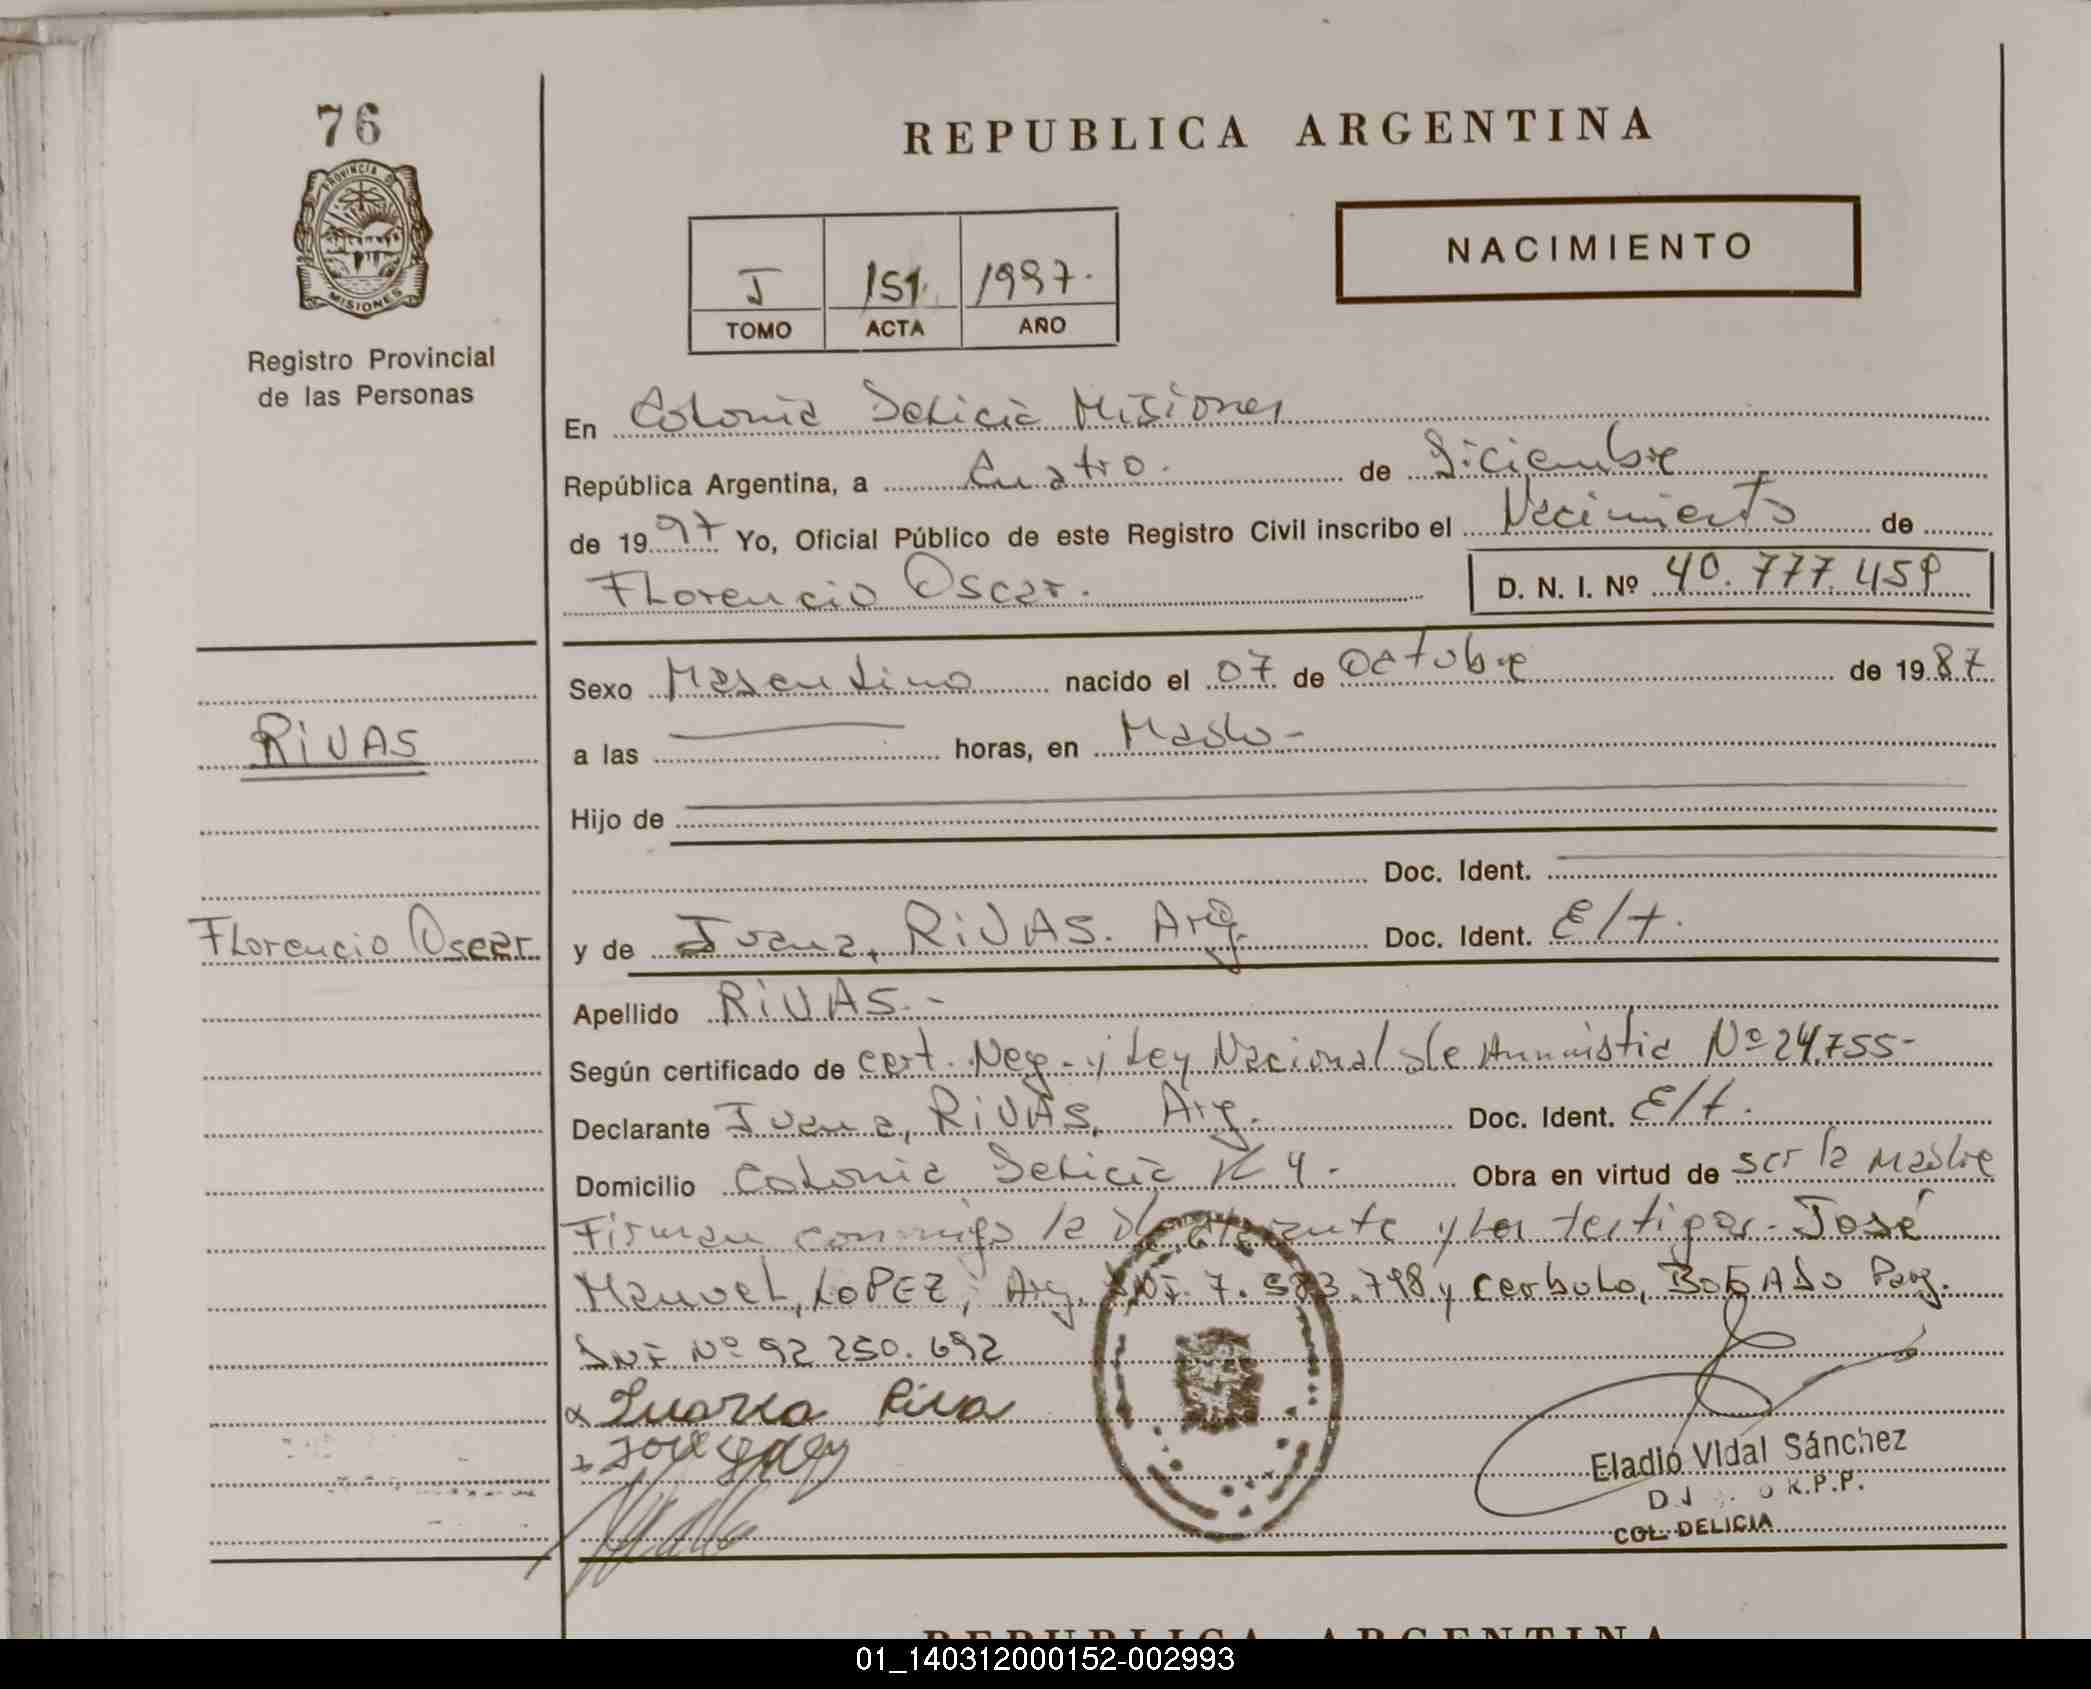 76
PROVINCIA DE
MISIONES
Registro Provincial
de las Personas
REPUBLICA ARGENTINA
NACIMIENTO
I 151. 1997.
TOMO ACTA AÑO
En Colonia Delicia Misiones
República Argentina, a Cuatro. de Diciembre
de 1997 Yo, Oficial Público de este Registro Civil inscribo el Nacimiento de
Florencio Oscar.
D. N. I. Nº 40.777.459
Sexo Masculino nacido el 07 de Octubre de 1987
RIVAS
a las horas, en
Hijo de
Doc. Ident.
Florencio Oscar
y de Juana, RIVAS. Arg. Doc. Ident. E/t.
Apellido RIVAS.-
Según certificado de cert. Neg. y Ley Nacional de Amnistia Nº 24.755-
Declarante Juana, RIVAS, Arg. Doc. Ident. E/t.
Domicilio Colonia Delicia K 4. Obra en virtud de ser la Madre
Firman conmigo la declarante y los testigos- José
Manuel, LOPEZ, Arg. DNI. 7.583.798 y Cerbulo, BOGADO Parg.
DNI Nº 92 250.692
Juana Riva
Eladio Vidal Sánchez
R.P.P.
COL. DELICIA
REPUBLICA ARGENTINA
01_140312000152-002993